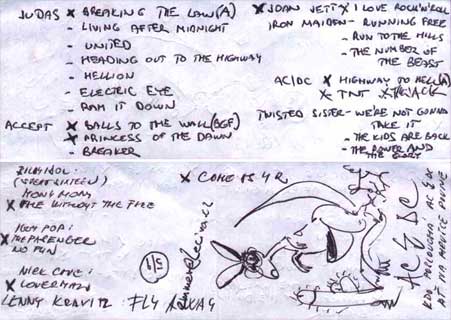 JUDAS X BREAKING THE LAW (A)
- LIVING AFTER MIDNIGHT
- UNITED
- HEADING OUT TO THE HIGHWAY
- HELLION
- ELECTRIC EYE
- RAM IT DOWN
ACCEPT X BALLS TO THE WALL
X PRINCESS OF THE DAWN
- BREAKER
X JOAN JETT X I LOVE ROCK'N'ROLL
IRON MAIDEN - RUNNING FREE
- RUN TO THE HILLS
- THE NUMBER OF
THE BEAST
AC/DC X HIGHWAY TO HELL (A)
X TNT
TWISTED SISTER - WE'RE NOT GONNA
TAKE IT
- THE KIDS ARE BACK
- THE POWER AND
THE GLORY
MONY MONY
IGGY POP:
X THE PASSENGER
NO FUN
NICK CAVE:
X LOVERMAN
LENNY KRAVITZ: FLY AWAY
X COME AS U R
AC & DC